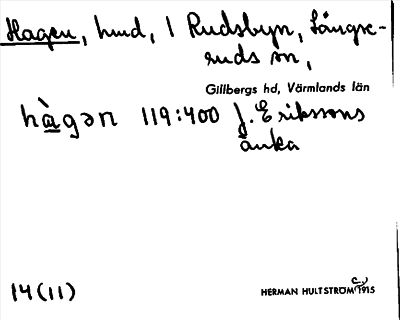 Hagen, hmd, i Rudsbyn, Långse-
ruds sn,
Gillbergs hd, Värmlands län
hàgən 119:400 J. Erikssons
änka
14(11) HERMAN HULTSTRÖM 1915